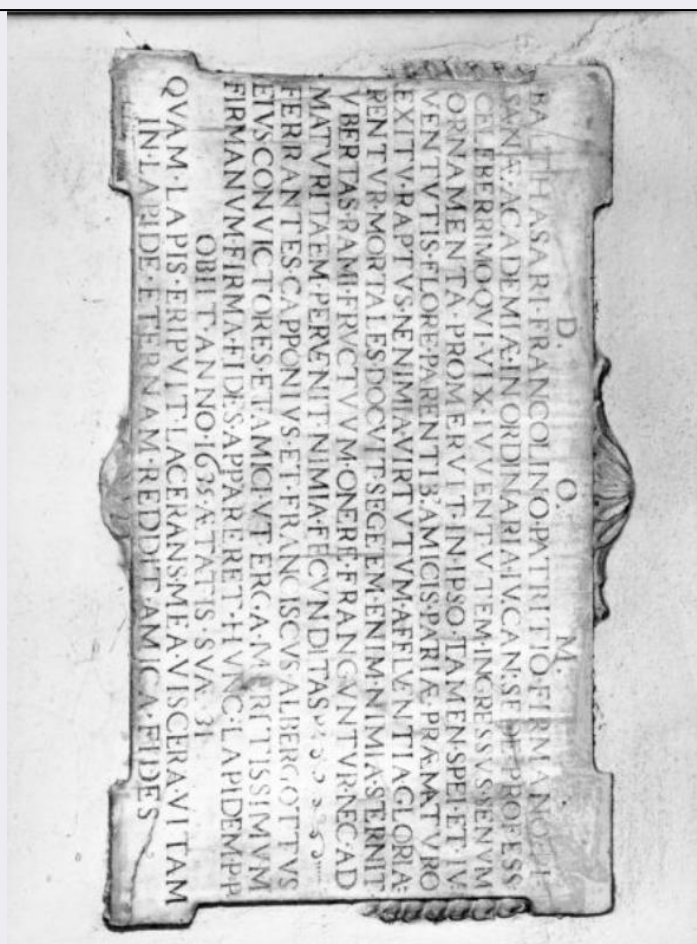 D. O. M.
BALTHASARI·FRANCOLINO·PATRITIO·FIRMANO·PI·
SANÆ·ACADEMIÆ·IN·ORDINARIA·IV·CAN:SEDE·PROFESS·
CELEBERRIMO·QVI·VIX·IVVENTVTEM·INGRESSVS·SENVM
ORNAMENTA·PROMERVIT·IN·IPSO·TAMEN·SPEI·ET·IV·
VENTVTIS·FLORE·PARENTIB'·AMICIS·PARIÆ·PRÆMATVRO
EXITV·RAPTVS·NENIMIA·VIRTVTVM·AFFLVENTIA·GLORIA:
RENTVR·MORTALES·DOCVIT·SEGETEM·ENIM·NIMIA·STERNIT
VBERTAS·RAMI·FRVCTVVM·ONERE·FRANGVNTVR·NEC·AD
MATVRITAEM·PERVENIT·NIMIA·FECVNDITAS
FERRANTES·CAPPONIVS·ET·FRANCISCVS·ALBERGOTTVS
EIVS·CONVICTORES·ET·AMICI·VT·ERGA·MERITISSIMVM
FIRMANVM·FIRMA·FIDES·APPARERET·HVNC·LAPIDEM·P·P·
OBIIT·ANNO·1635·ÆTATIS·SVÆ·31·
QVAM·LAPIS·ERIPVIT·LACERANS·MEA·VISCERA·VITAM
IN·LAPIDE·ETERNAM·REDDIT·AMICA·FIDES